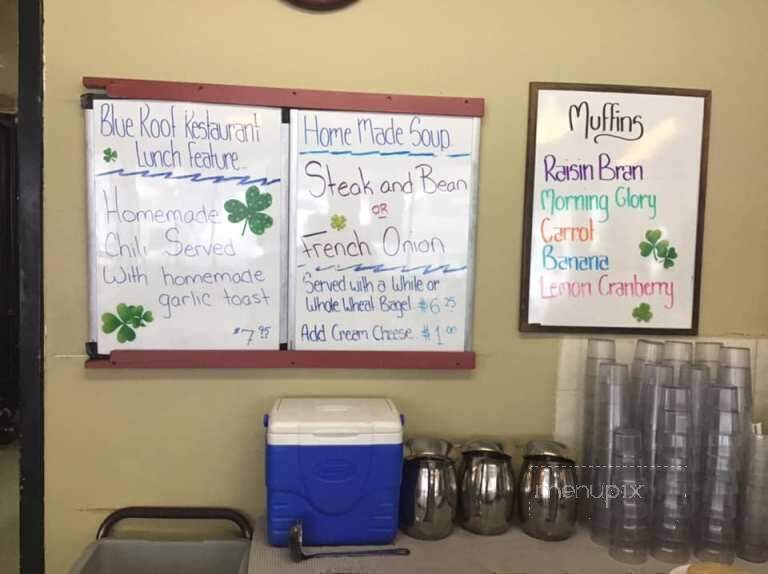 Blue Roof Restaurant
Lunch Feature
Homemade
Chili Served
With homemade
garlic toast
$7.95
Home Made Soup
Steak and Bean
OR
French Onion
Served with a White or
Whole Wheat Bagel $6.25
Add Cream Cheese $1.00
Muffins
Raisin Bran
Morning Glory
Carrot
Banana
Lemon Cranberry
menupix